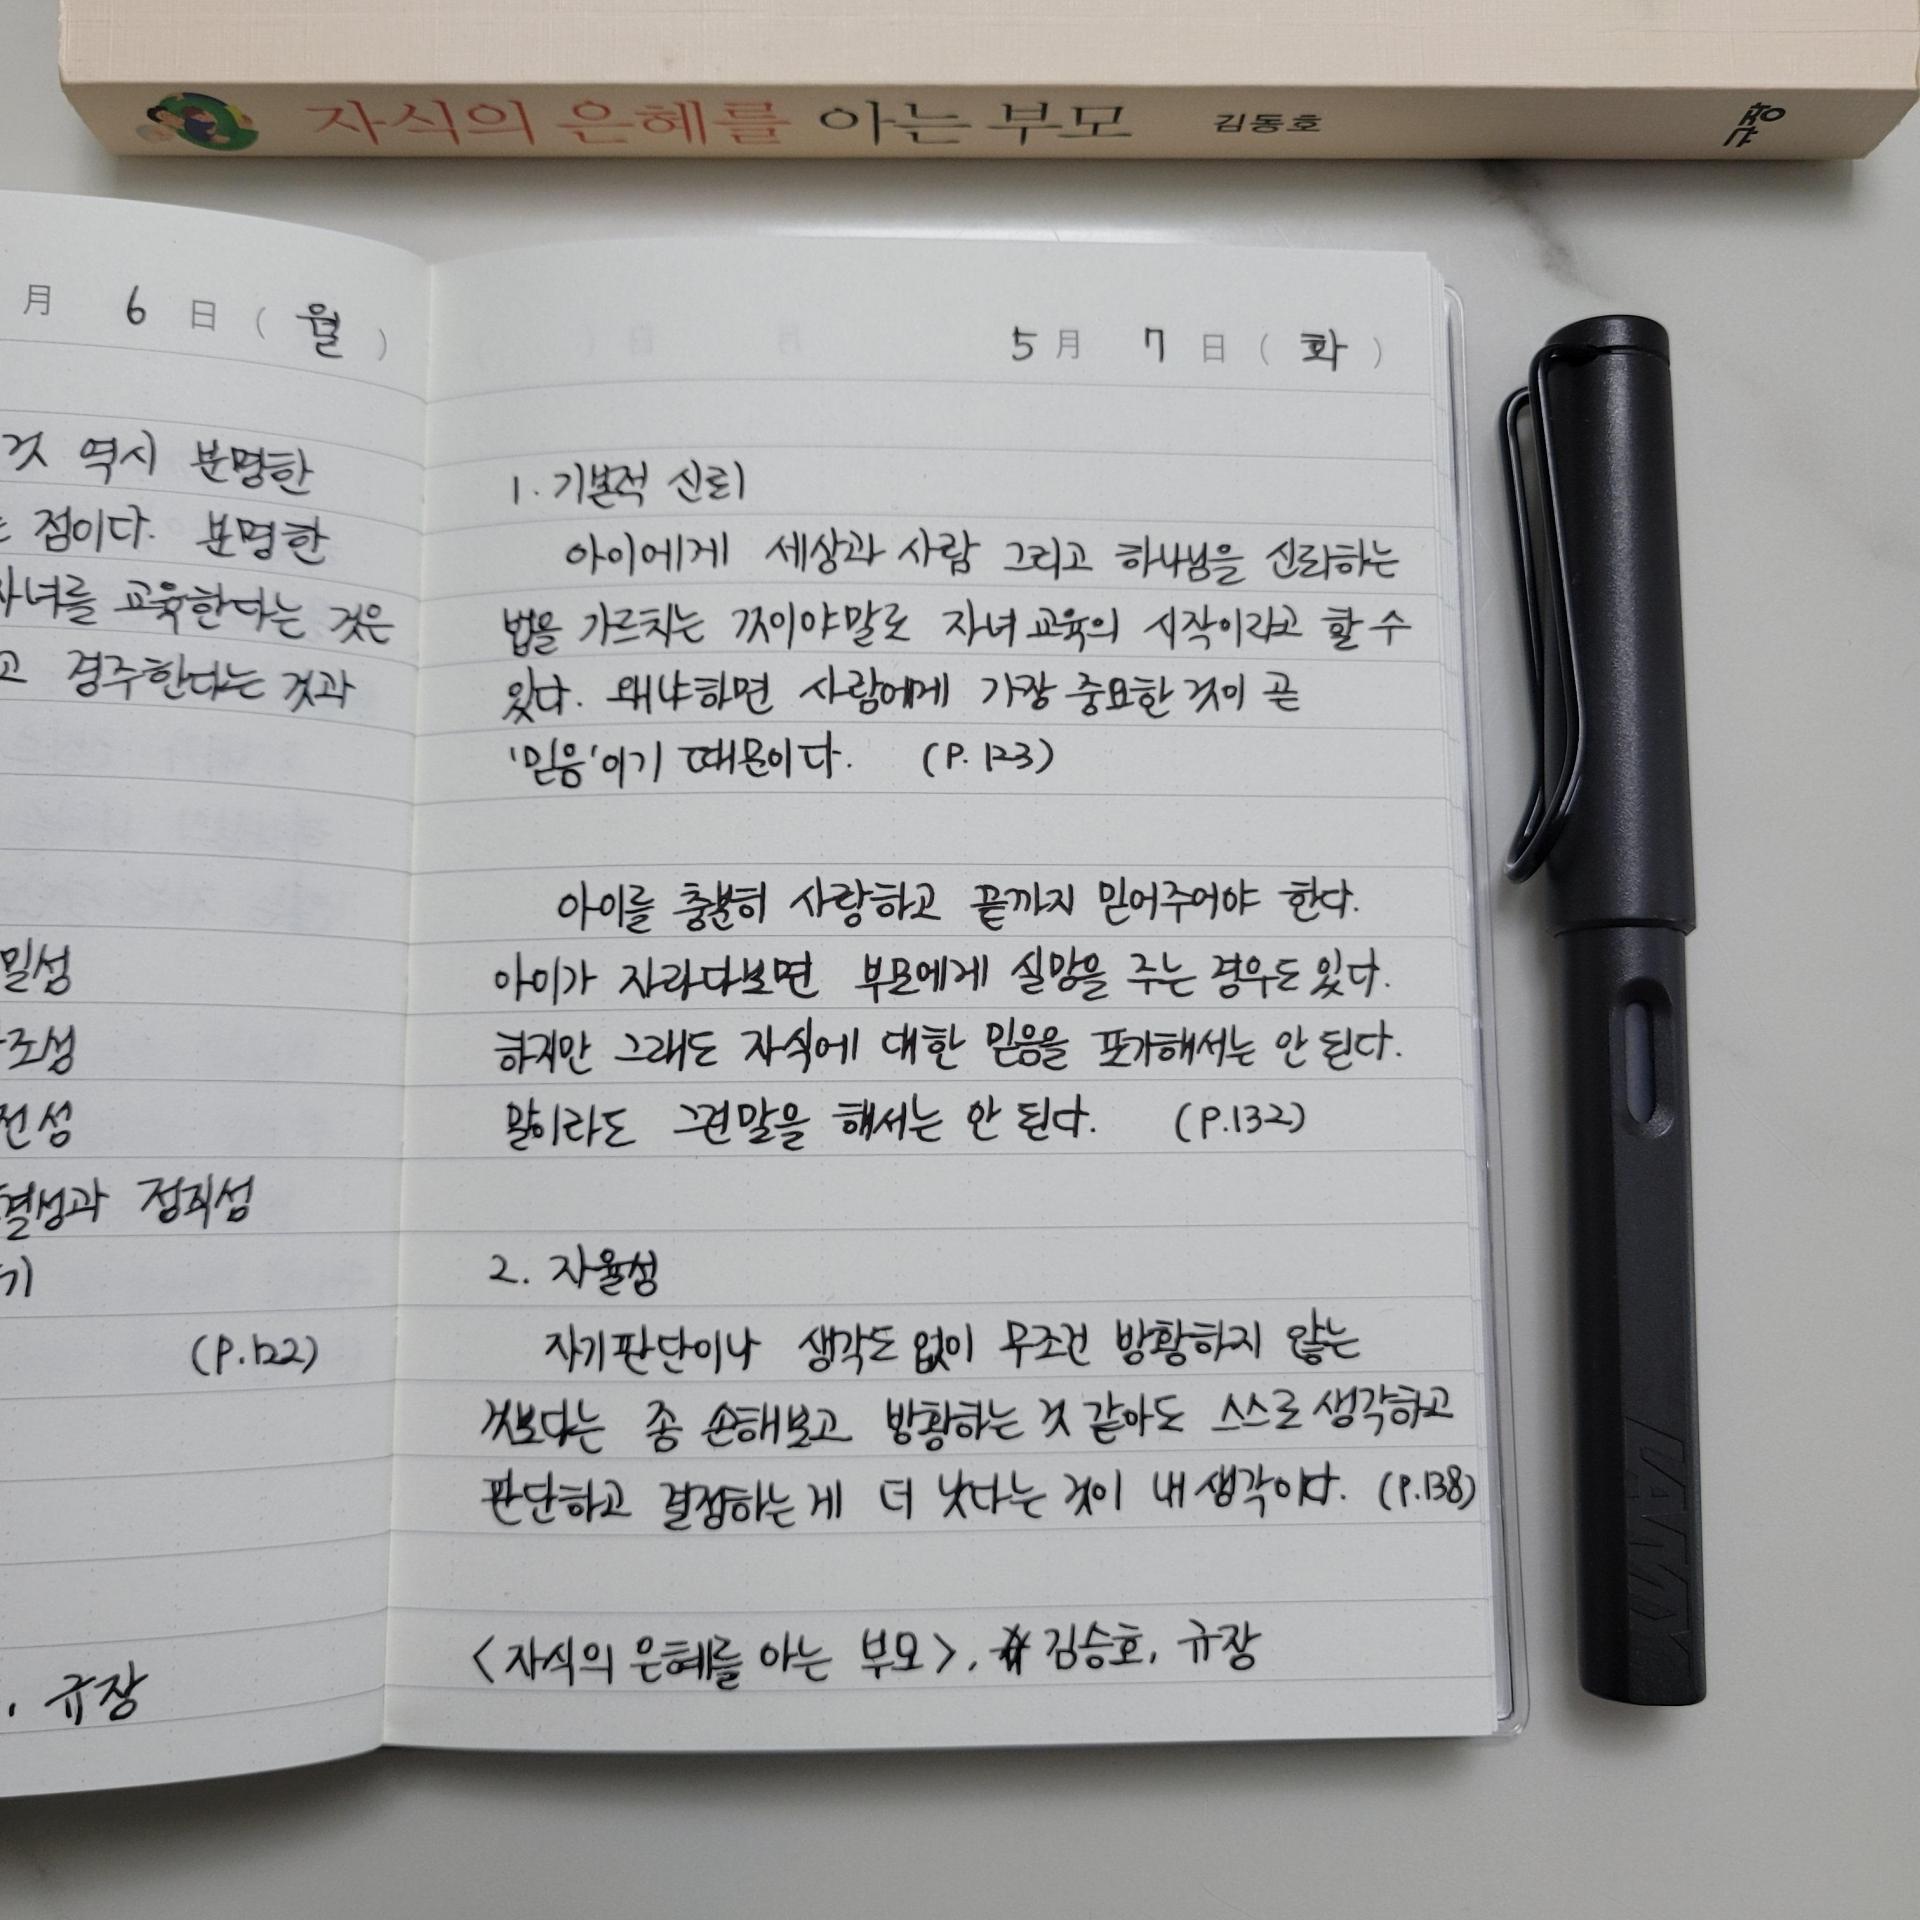 자식의 은혜를 아는 부모 김동호 규장
月 6 日 ( 월 )
것 역시 분명한
점이다. 분명한
자녀를 교육한다는 것은
고 경주한다는 것과
밀성
조성
전성
결성과 정직성
기
(P.122)
, 규장
5月 7日 ( 화 )
1. 기본적 신뢰
아이에게 세상과 사람 그리고 하나님을 신뢰하는
법을 가르치는 것이야말로 자녀 교육의 시작이라고 할 수
있다. 왜냐하면 사람에게 가장 중요한 것이 곧
'믿음'이기 때문이다. (P. 123)
아이를 충분히 사랑하고 끝까지 믿어주어야 한다.
아이가 자라다보면 부모에게 실망을 주는 경우도 있다.
하지만 그래도 자식에 대한 믿음을 포기해서는 안 된다.
말이라도 그런말을 해서는 안 된다. (P.132)
2. 자율성
자기판단이나 생각도 없이 무조건 방황하지 않는
것보다는 좀 손해보고 방황하는 것 같아도 스스로 생각하고
판단하고 결정하는게 더 낫다는 것이 내 생각이다. (P.138)
<자식의 은혜를 아는 부모>, 김승호, 규장
LAMY